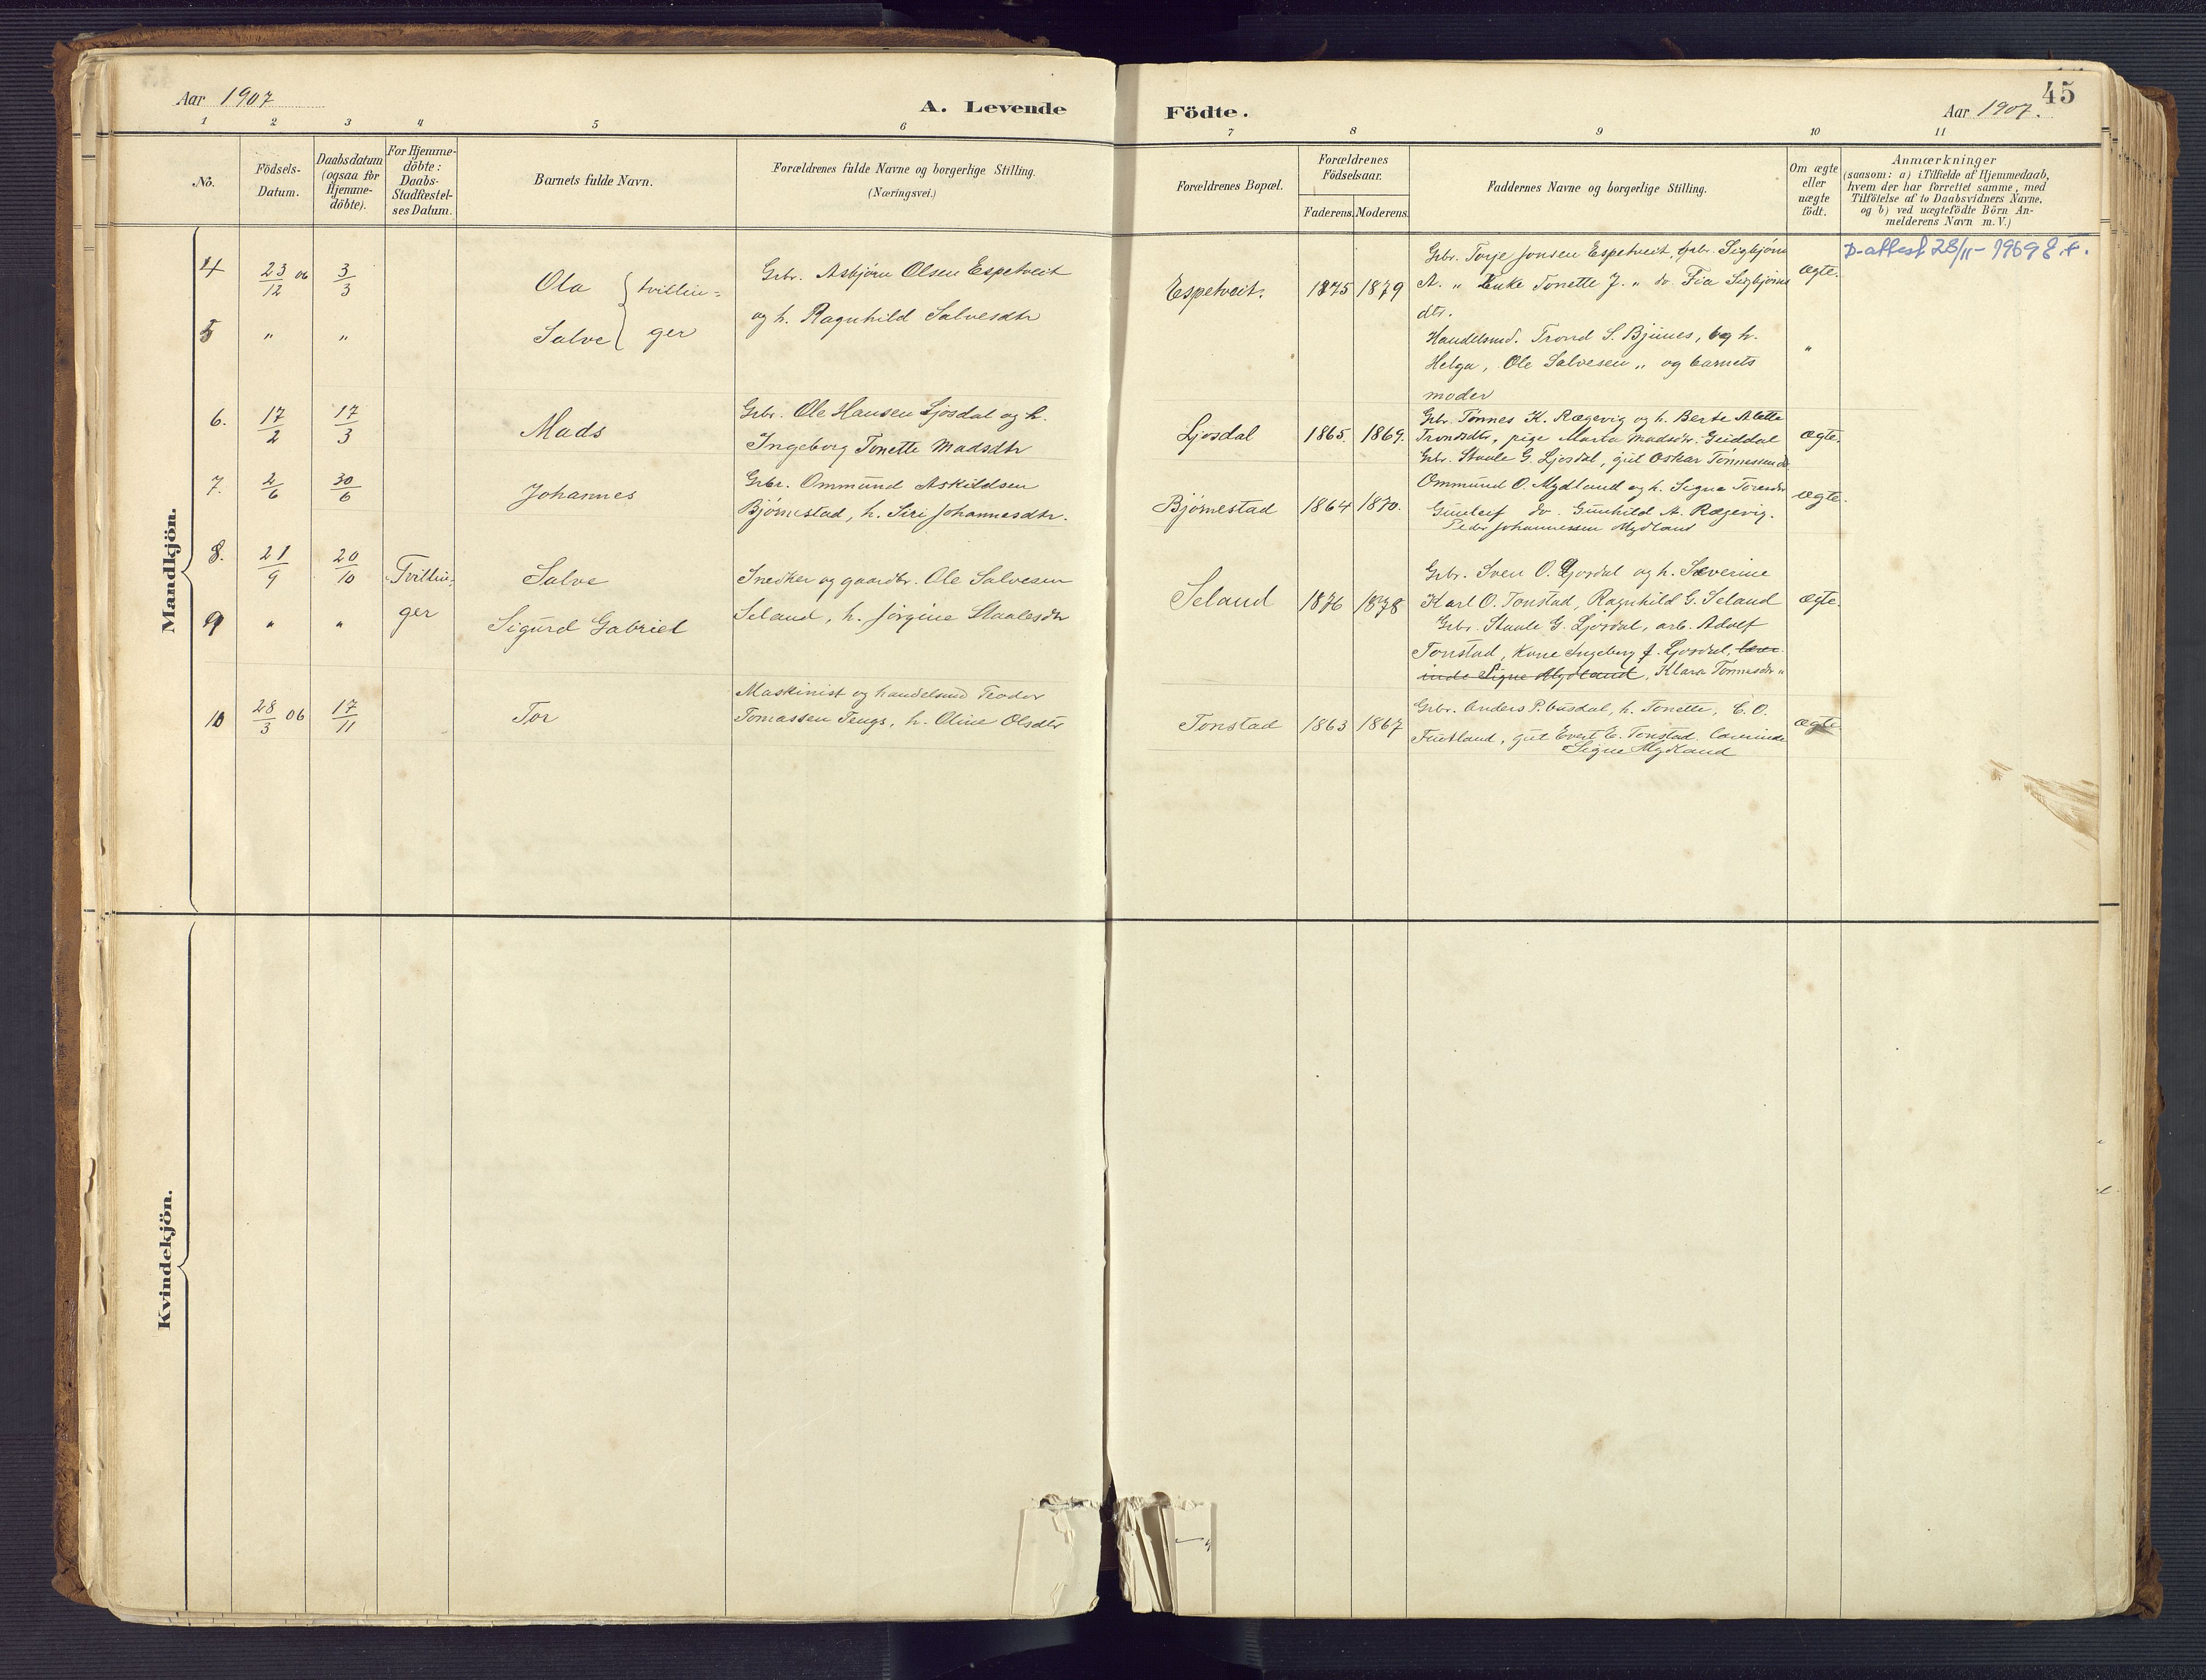 45
Aar 1907
A. Levende
Födte.
Aar 1907.
1 2 3 4 5 6 7 8 9 10 11
No.
Födsels-
Datum.
Daabsdatum
(ogsaa for
Hjemme-
döbte).
For Hjemme-
döbte:
Daabs-
Stadfæstel-
ses Datum.
Barnets fulde Navn.
Forældrenes fulde Navne og borgerlige Stilling.
(Næringsvei.)
Forældrenes Bopæl.
Forældrenes
Födselsaar.
Faderens. Moderens.
Faddernes Navne og borgerlige Stilling.
Om ægte
eller
uægte
födt.
Anmærkninger
(saasom: a) i Tilfælde af Hjemmedaab,
hvem der har forrettet samme, med
Tilföielse af to Daabsvidners Navne,
og b) ved uægtefödte Börn An-
melderens Navn m. V.)
Mandkjön.
4 23/12 06 3/3 Ola tvillin=
Gbr. Asbjørn Olsen Espetveit
Espetveit. 1875 1879
Gbr. Torje Jonsen Espetveit, gbr. Sigbjørn
A. " Enke Tonette J. " dr. Fia Sigbjørns
dtr.
ægte.
D-attest 28/11-1969
5 " " Salve ger
og h. Ragnhild Salvesdtr
Handelsmd. Trond S. Bjunes, og h.
Helga, Ole Salvesen " og barnets
moder
"
6. 17/2 17/3 Mads
Gbr. Ole Hansen Ljosdal og h.
Ingeborg Tonette Madsdtr
Ljosdal 1865. 1869.
Gbr. Tønnes K. Rægevig og h. Berte Alette
Trondsdtr, pige Marta Madsdr. Geiddal
Gbr. Staale G. Ljosdal, gut Oskar Tønnessen do
ægte.
7. 2/6 30/6 Johannes
Gbr. Ommund Askildsen
Bjørnestad, h. Siri Johannesdtr.
Bjørnestad 1864 1870.
Ommund O. Mydland og h. Signe Toresdr
Gunleif do. Gunhild A. Rægevig.
Peder Johannessen Mydland
ægte.
8. 21/9 20/10 Tvillin= Salve
Snedker og gaardbr. Ole Salvesen
Seland 1876 1878
Gbr. Sven O. Ljosdal og h. Severine
Karl O. Tonstad, Ragnhild G. Seland
ægte.
9 " " ger Sigurd Gabriel
Seland, h. Jørgine Staalesdtr
Gbr. Staale G. Ljosdal, arb. Adolf
Tonstad, Kone Ingeborg J. Ljosdal, lærer-
inde Signe Mydland, Klara Tønnesdr "
10 28/3 06 17/11 Tor
Maskinist og handelsmd Teodor
Tomassen Teugs, h. Oline Olsdtr
Tonstad 1863 1867
Gbr. Anders P. Ousdal, h. Tonette, E. O.
Fintland, gut Evert E. Tonstad. Lærerinde
Signe Mydland
ægte
Kvindekjön.